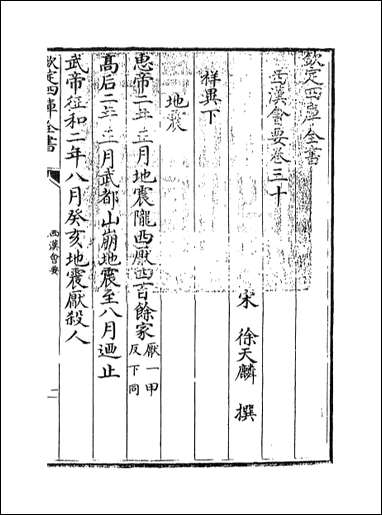 欽定四庫全書
西漢會要卷三十
宋 徐天麟 撰
祥異下
地震
惠帝二年正月地震隴西厭四百餘家厭一甲反下同
高后二年正月武都山崩地震至八月迺止
武帝征和二年八月癸亥地震厭殺人
欽定四庫全書
西漢會要
一